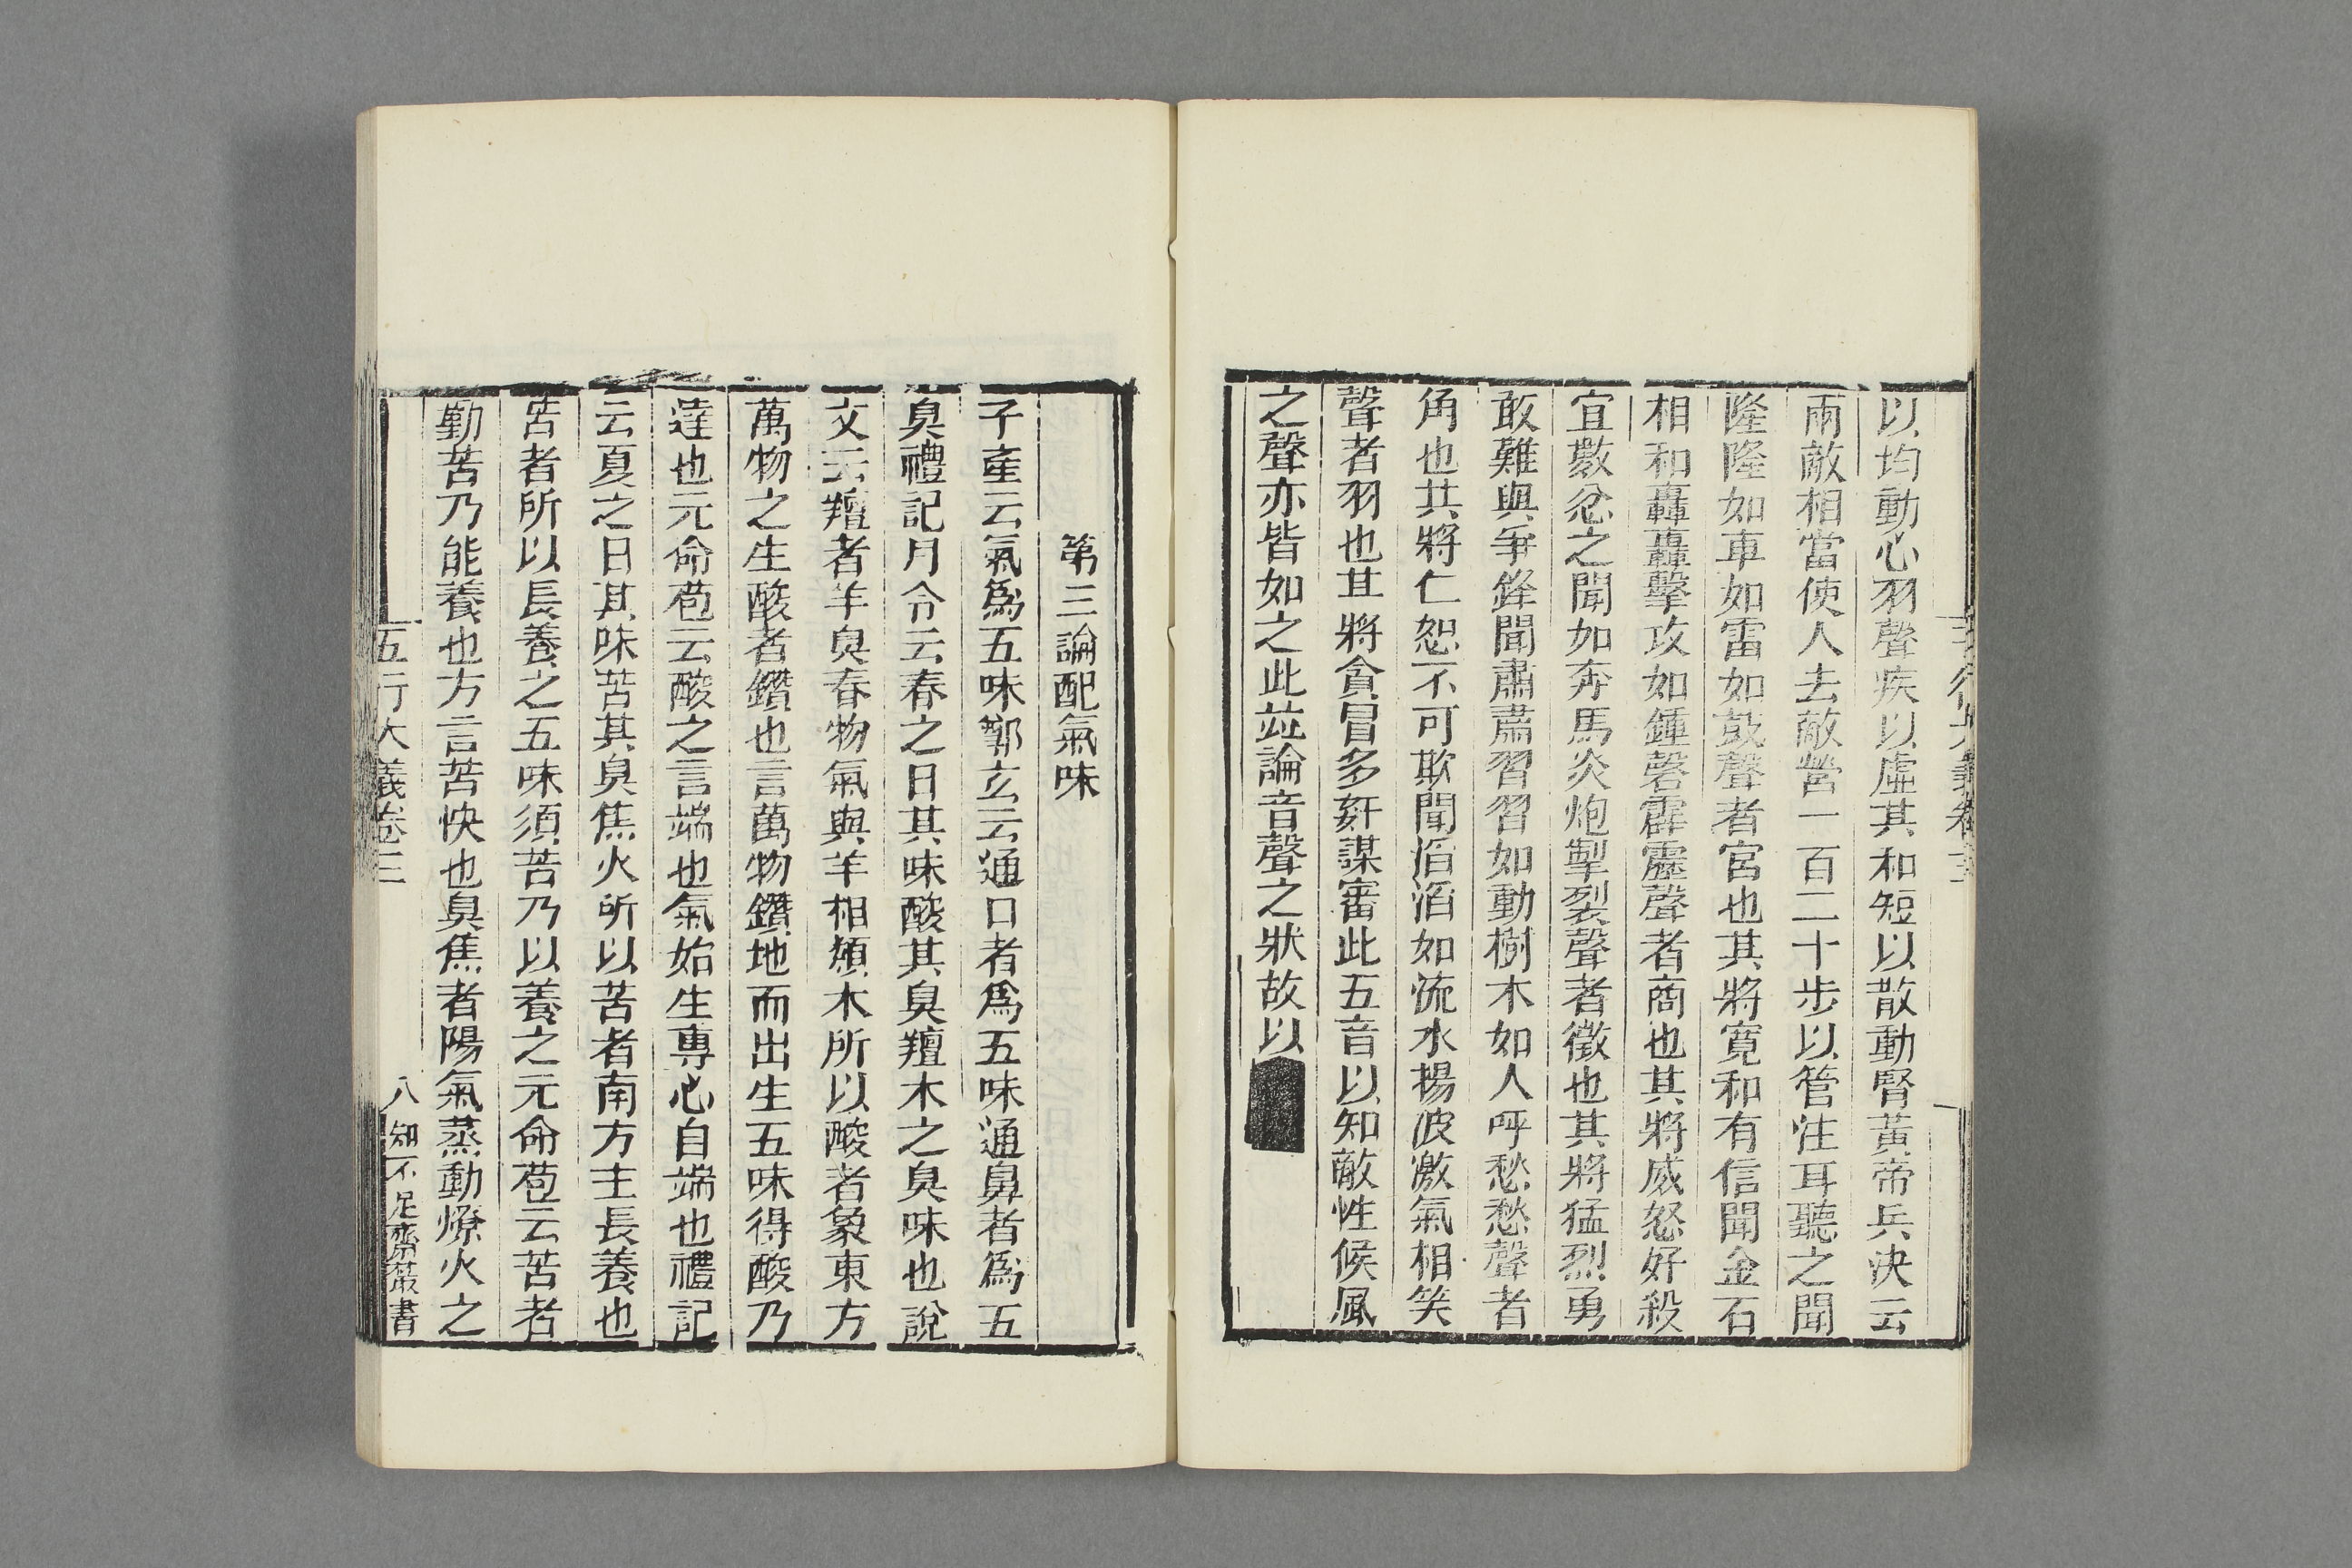 以均動心羽聲疾以虛其和短以散動腎黃帝兵決云
兩敵相當使人去敵營一百二十步以管注耳聽之聞
隆隆如車如雷如鼓聲者宮也其將寬和有信聞金石
相和轟轟擊攻如鍾磬霹靂聲者商也其將威怒好殺
宜數忿之聞如奔馬炎炮掣裂聲者徵也其將猛烈勇
敢難與爭鋒聞肅肅習習如動樹木如人呼愁愁聲者
角也其將仁恕不可欺聞滔滔如流水揚波激氣相笑
聲者羽也其將貪冒多姧謀審此五音以知敵性候風
之聲亦皆如之此竝論音聲之狀故以
第三論配氣味
子產云氣爲五味鄭玄云通口者爲五味通鼻者爲五
臭禮記月令云春之日其味酸其臭羶木之臭味也說
文云羶者羊臭春物氣與羊相類木所以酸者象東方
萬物之生酸者鑽也言萬物鑽地而出生五味得酸乃
達也元命苞云酸之言端也氣始生專心自端也禮記
云夏之日其味苦其臭焦火所以苦者南方主長養也
苦者所以長養之五味須苦乃以養之元命苞云苦者
勤苦乃能養也方言苦快也臭焦者陽氣蒸動燎火之
五行大義卷三
八
知不足齋叢書